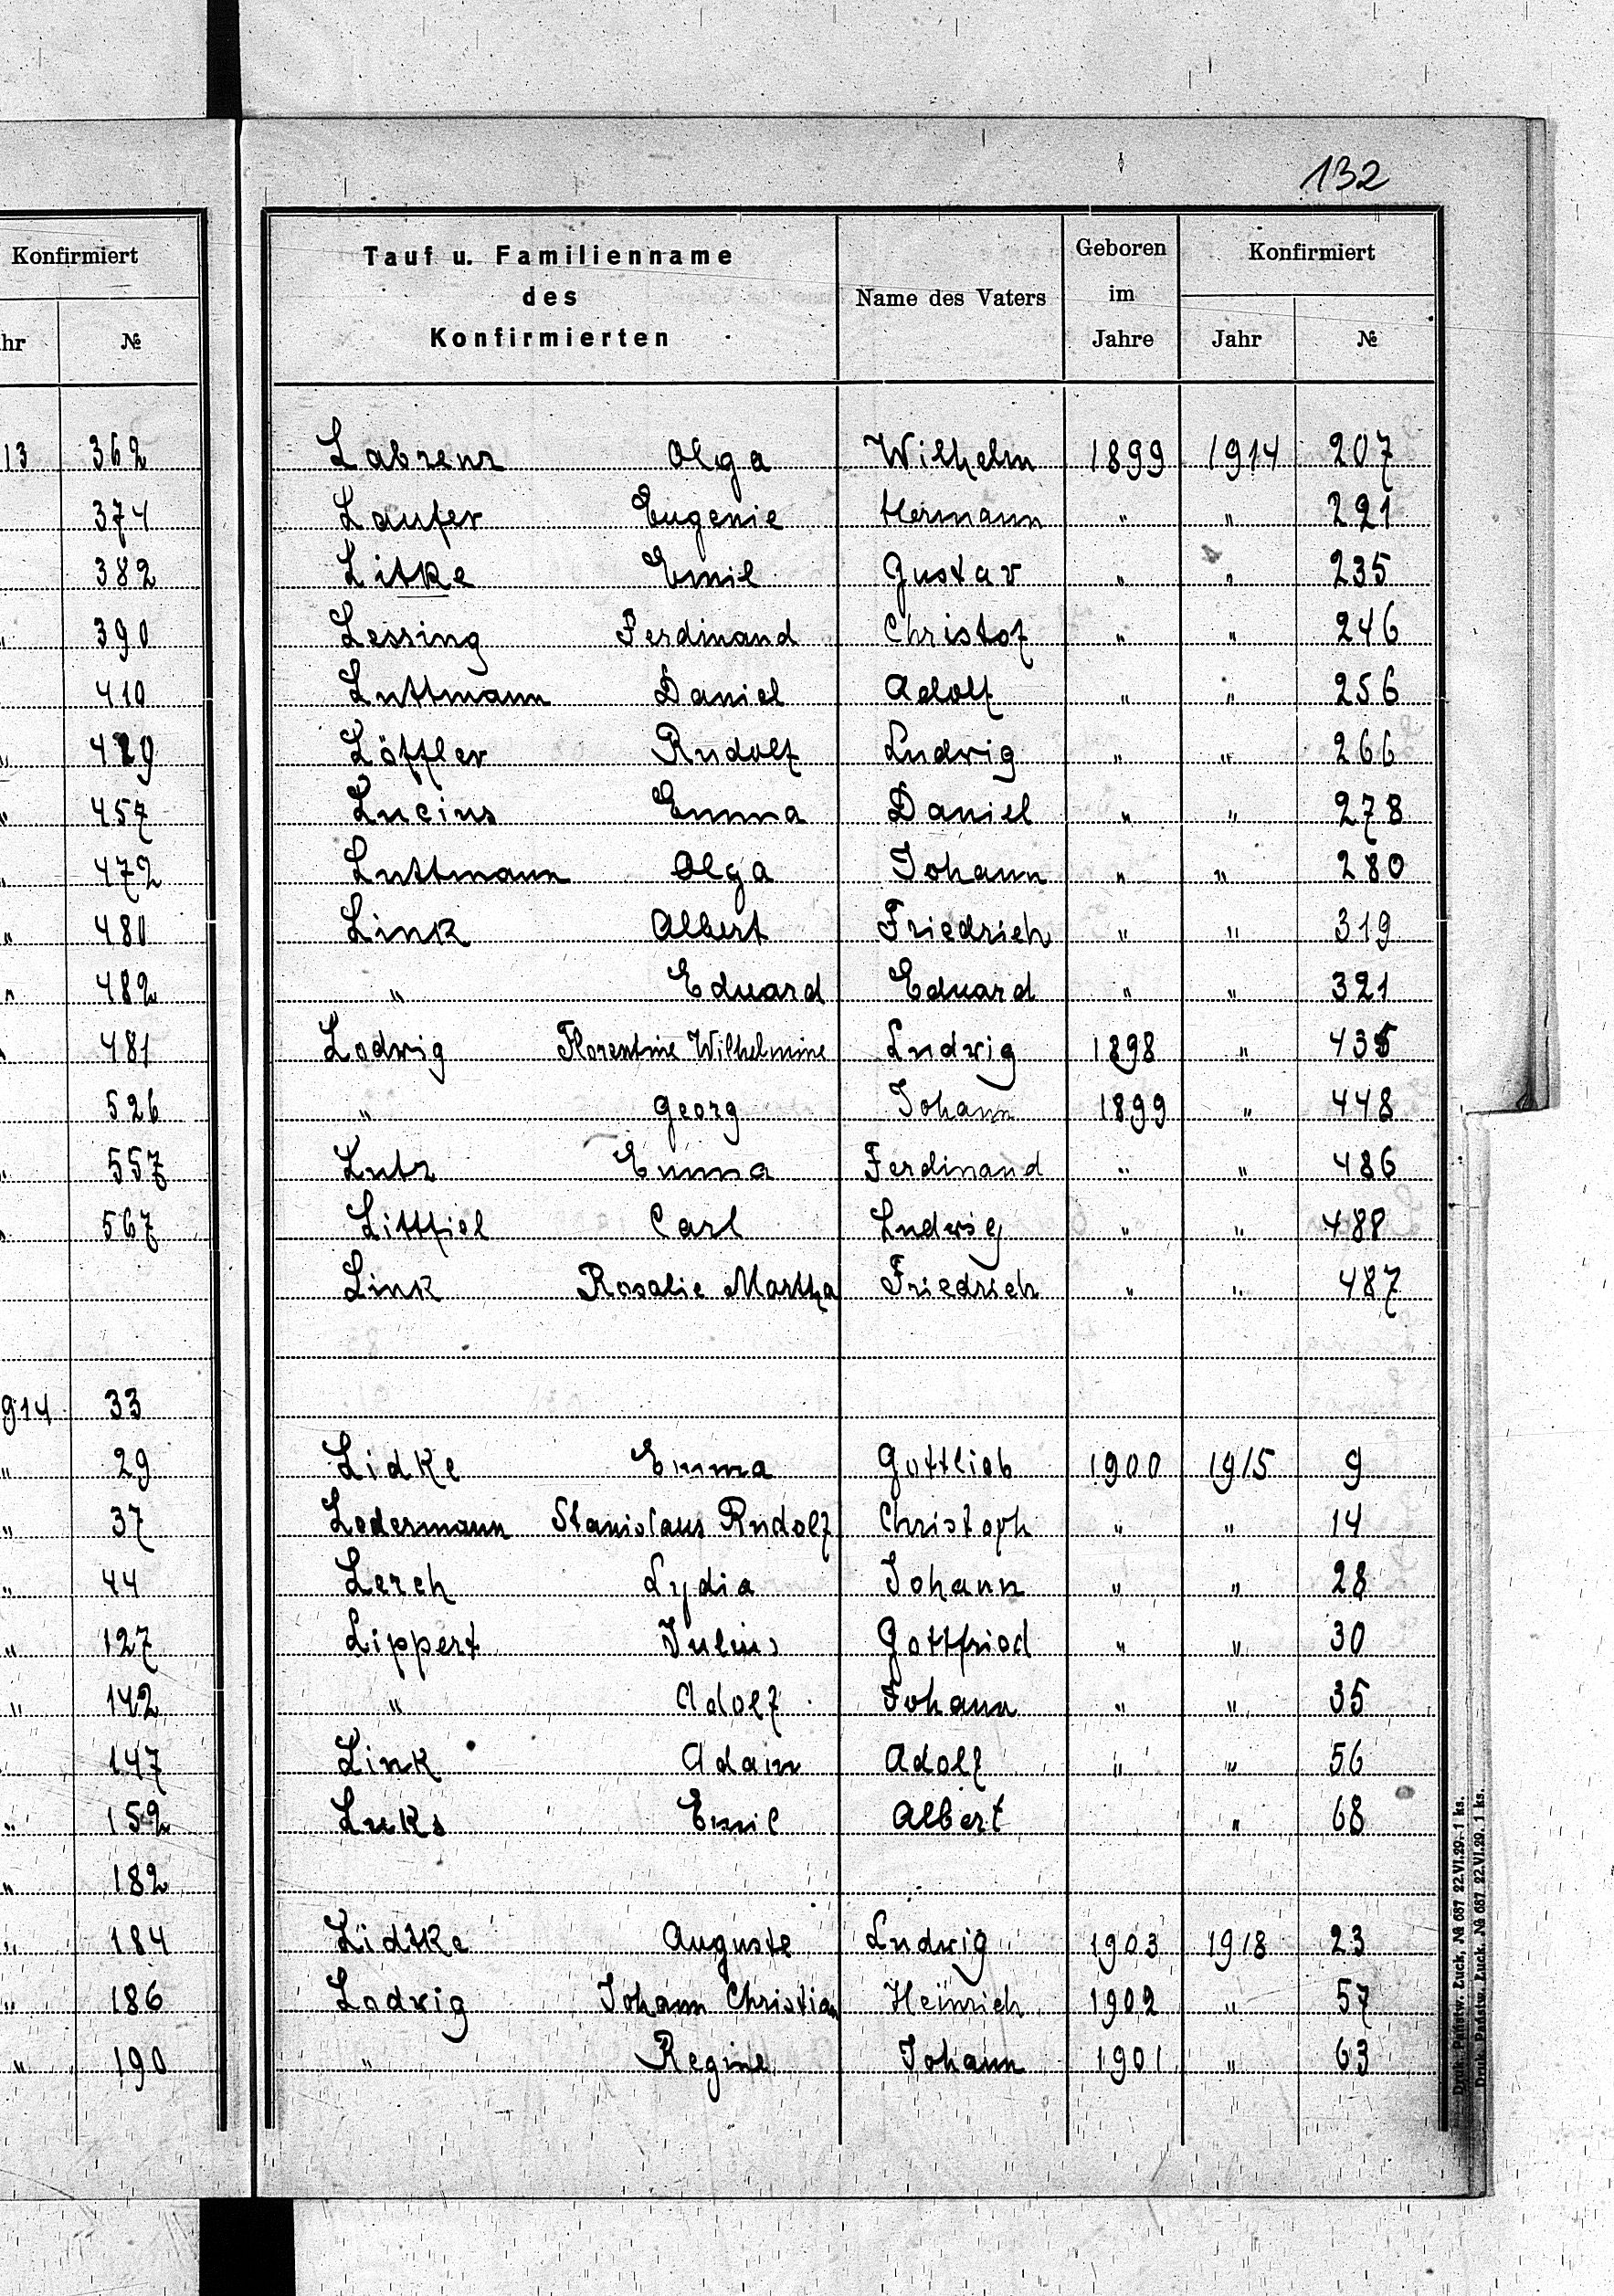 132
Konfirmiert
hr №
13 362
374
382
" 390
410
" 429
" 457
" 472
" 480
" 482
" 481
526
" 557
" 567
914 33
" 29
" 37
" 44
" 127
" 142
147
" 152
" 182
" 184
" 186
" 190
Tauf u. Familienname des Konfirmierten
Name des Vaters
Geboren im Jahre
Konfirmiert
Jahr №
Labrenz Olga Wilhelm 1899 1914 207
Laufer Eugenie Hermann " " 221
Litke Emil Gustav " " 235
Lessing Ferdinand Christof " " 246
Luttmann Daniel Adolf " " 256
Löffler Rudolf Ludwig " " 266
Lucius Emma Daniel " " 278
Luttmann Olga Johann " " 280
Link Albert Friedrich " " 319
" Eduard Eduard " " 321
Lodwig Florentine Wilhelmine Ludwig 1898 " 435
" Georg Johann 1899 " 448
Lutz Emma Ferdinand " " 486
Littfiel Carl Ludwig " " 488
Link Rosalie Martha Friedrich " " 487
Lidke Emma Gottlieb 1900 1915 9
Ledermann Stanislaus Rudolf Christoph " " 14
Lerch Lydia Johann " " 28
Lippert Julius Gottfried " " 30
" Adolf Johann " " 35
Link Adam Adolf " " 56
Luks Emil Albert " 68
Lidtke Auguste Ludwig 1903 1918 23
Lodwig Johann Christian Heinrich 1902 " 57
" Regine Johann 1901 " 63
Druk. Państw. Łuck, № 687 22.VI.29. 1 ks.
Druk. Państw. Łuck, № 687 22.VI.29. 1 ks.